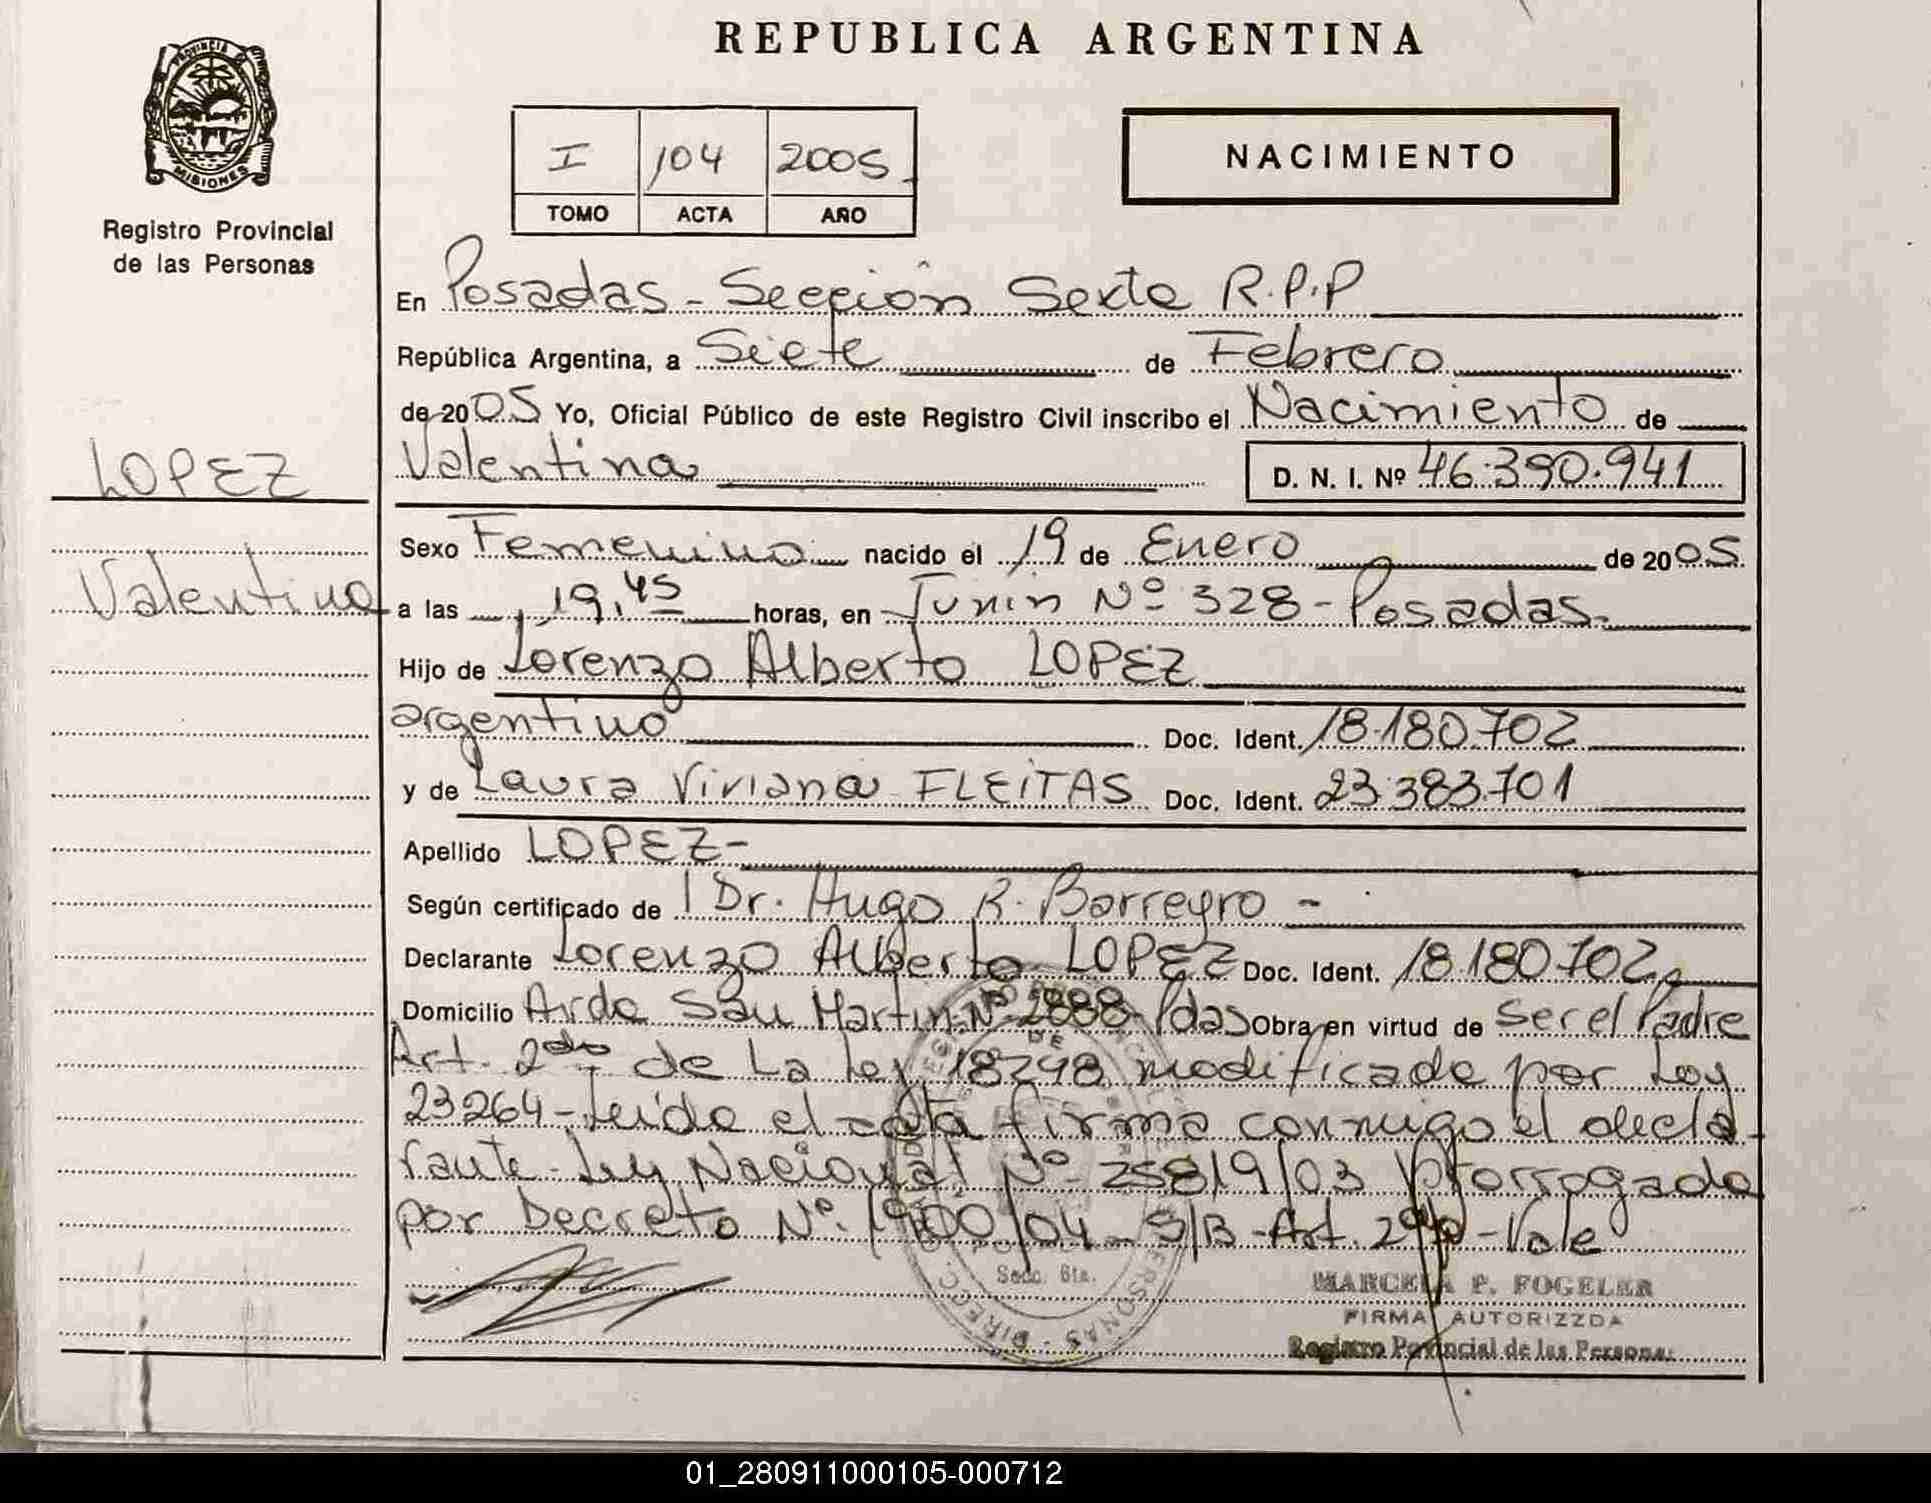 REPUBLICA ARGENTINA
PROVINCIA DE
MISIONES
Registro Provincial
de las Personas
I 104 2005
TOMO ACTA AÑO
NACIMIENTO
En Posadas - Sección Sexta R.P.P
República Argentina, a Siete de Febrero
de 2005 Yo, Oficial Público de este Registro Civil inscribo el Nacimiento de
Valentina D. N. I. Nº 46.390.941
LOPEZ
Valentina
Sexo Femenino nacido el 19 de Enero de 2005
a las 19,45 horas, en Junin Nº 328 - Posadas
Hijo de Lorenzo Alberto LOPEZ
argentino Doc. Ident. 18.180.702
y de Laura Viviana FLEITAS Doc. Ident. 23.383.701
Apellido LOPEZ-
Según certificado de Dr. Hugo R. Barreyro -
Declarante Lorenzo Alberto LOPEZ Doc. Ident. 18.180.702
Domicilio Avda San Martin Nº 2888 - Pdas Obra en virtud de Ser el Padre
Art. 2do de La Ley 18248 modificada por Ley
23264 - Leída el acta firma conmigo el decla
rante - Ley Nacional Nº 25819/03 Prorrogada
por Decreto Nº 1900/04 - S/B - Art. 2do - Vale
Secc. 6ta.
MARCELA P. FOGELER
FIRMA AUTORIZZDA
Registro Provincial de las Personas
01_280911000105-000712